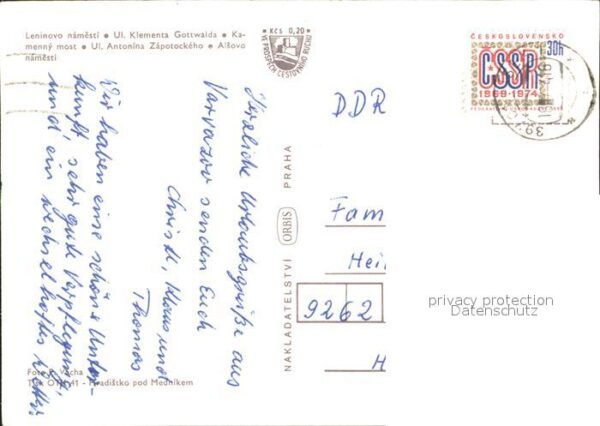 Leninovo náměstí • Ul. Klementa Gottwalda • Ka-
menný most • Ul. Antonína Zápotockého • Alšovo
náměstí
Kčs 0,20
VE PROSPĚCH CESTOVNÍHO RUCHU
ČESKOSLOVENSKO
30h
ČSSR
1969-1974
DDR
Herzliche Urlaubsgrüße aus
Varvazov senden Euch
Christl, Klaus und
Thomas
Wir haben eine schöne Unter-
kunft, sehr gute Verpflegung,
und ein wechselhaftes Wetter
NAKLADATELSTVÍ ORBIS PRAHA
Fam
Hei
9262
H
privacy protection
Datenschutz
Foto P. Vácha
Tisk 41 - Hradištko pod Medníkem